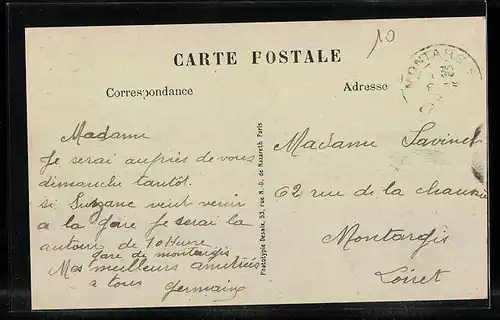 10
CARTE POSTALE
MONTARGIS
Correspondance
Adresse
Madame
Je serai aupries de vous
dimanche tantot.
si Suzane veut venir
a la gare Je serai la
autour de 10 Heure
gare de montargis
Mes meilleurs amitiés
a tous Germaine
Phototypie Desaix, 53, rue N.-D. de Nazareth Paris
Madame Savinet
62 rue de la chaussée
Montargis
Loiret